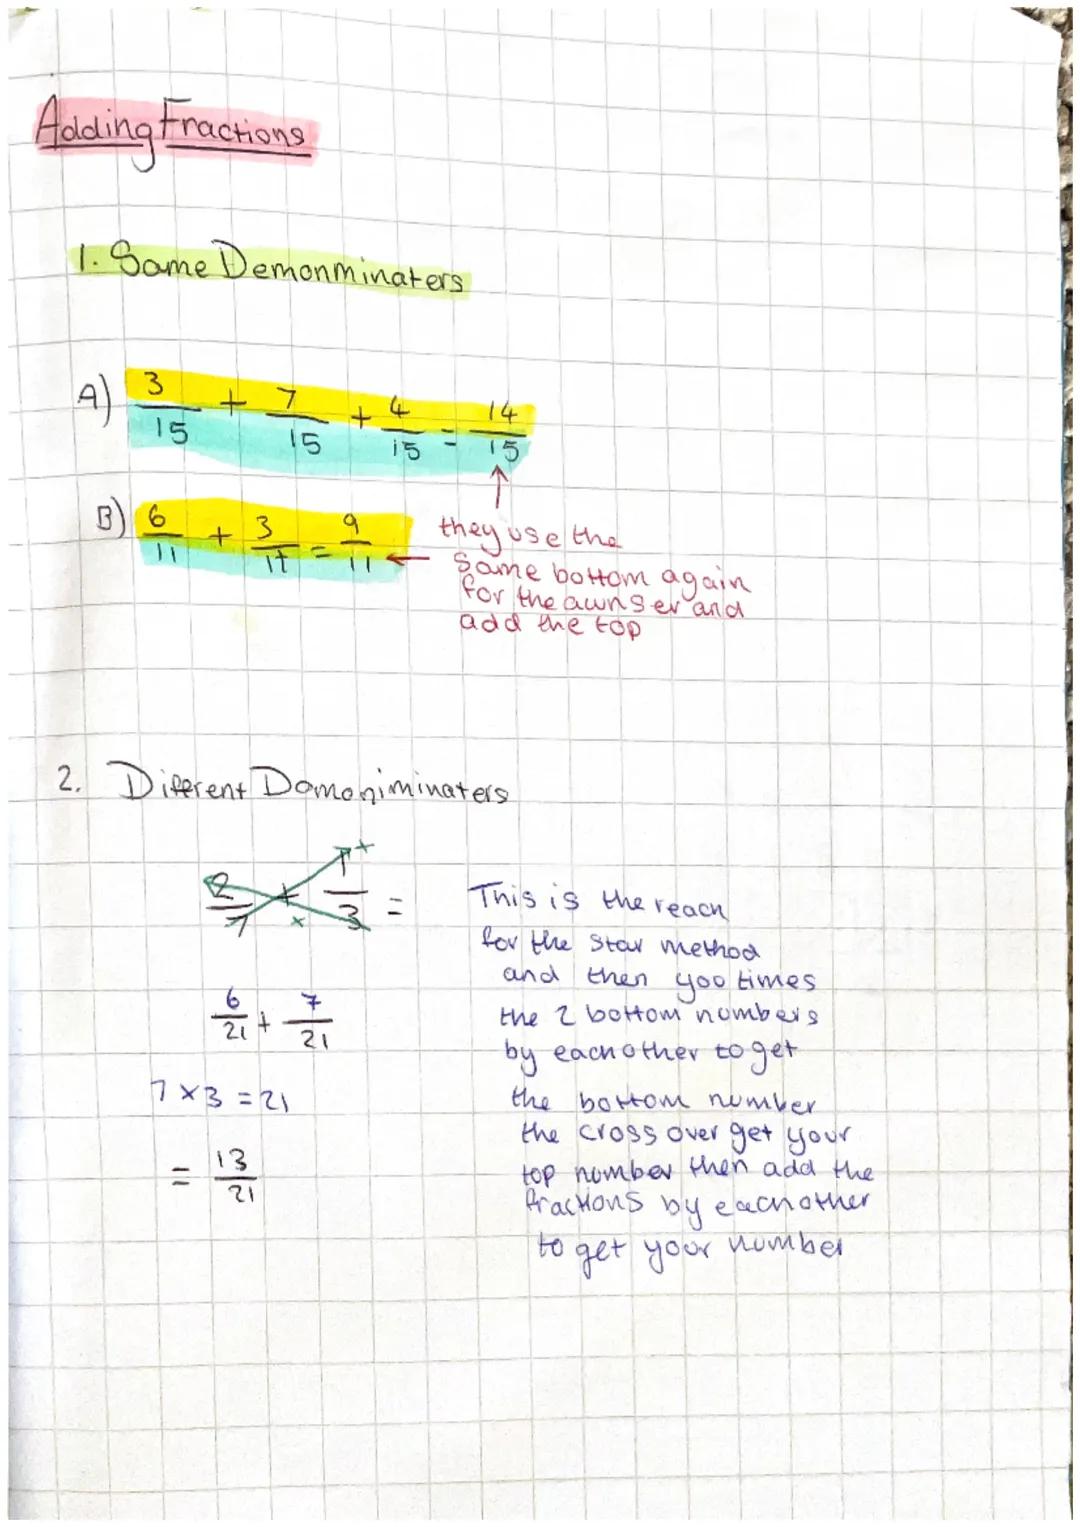 Adding Fractions
1. Same Demonminaters
A) 3/15 + 7/15 + 4/15 = 14/15
B) 6/11 + 3/11 = 9/11
they use the
same bottom again
for the awnser and
add the top
2. Diferent Domoniminaters
2/7 + 1/3 =
x
x
6/21 + 7/21
7 x 3 = 21
= 13/21
This is the reach
for the star method
and then yoo times
the 2 bottom numbers
by eachother to get
the bottom number
the cross over get your
top number then add the
fractions by eachother
to get your number